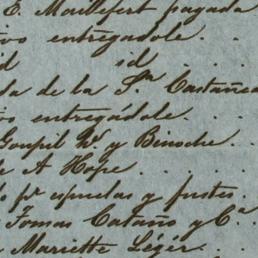 E. Maillefert pagada
vos entregádole . .
id id . . .
da de la Sra Castañeda
vos entregádole . .
Goupil W. y Binoche
A Hope . . . .
pr espuelas y fustes
Tomas Cataño y Ca
Mariette Légér . .